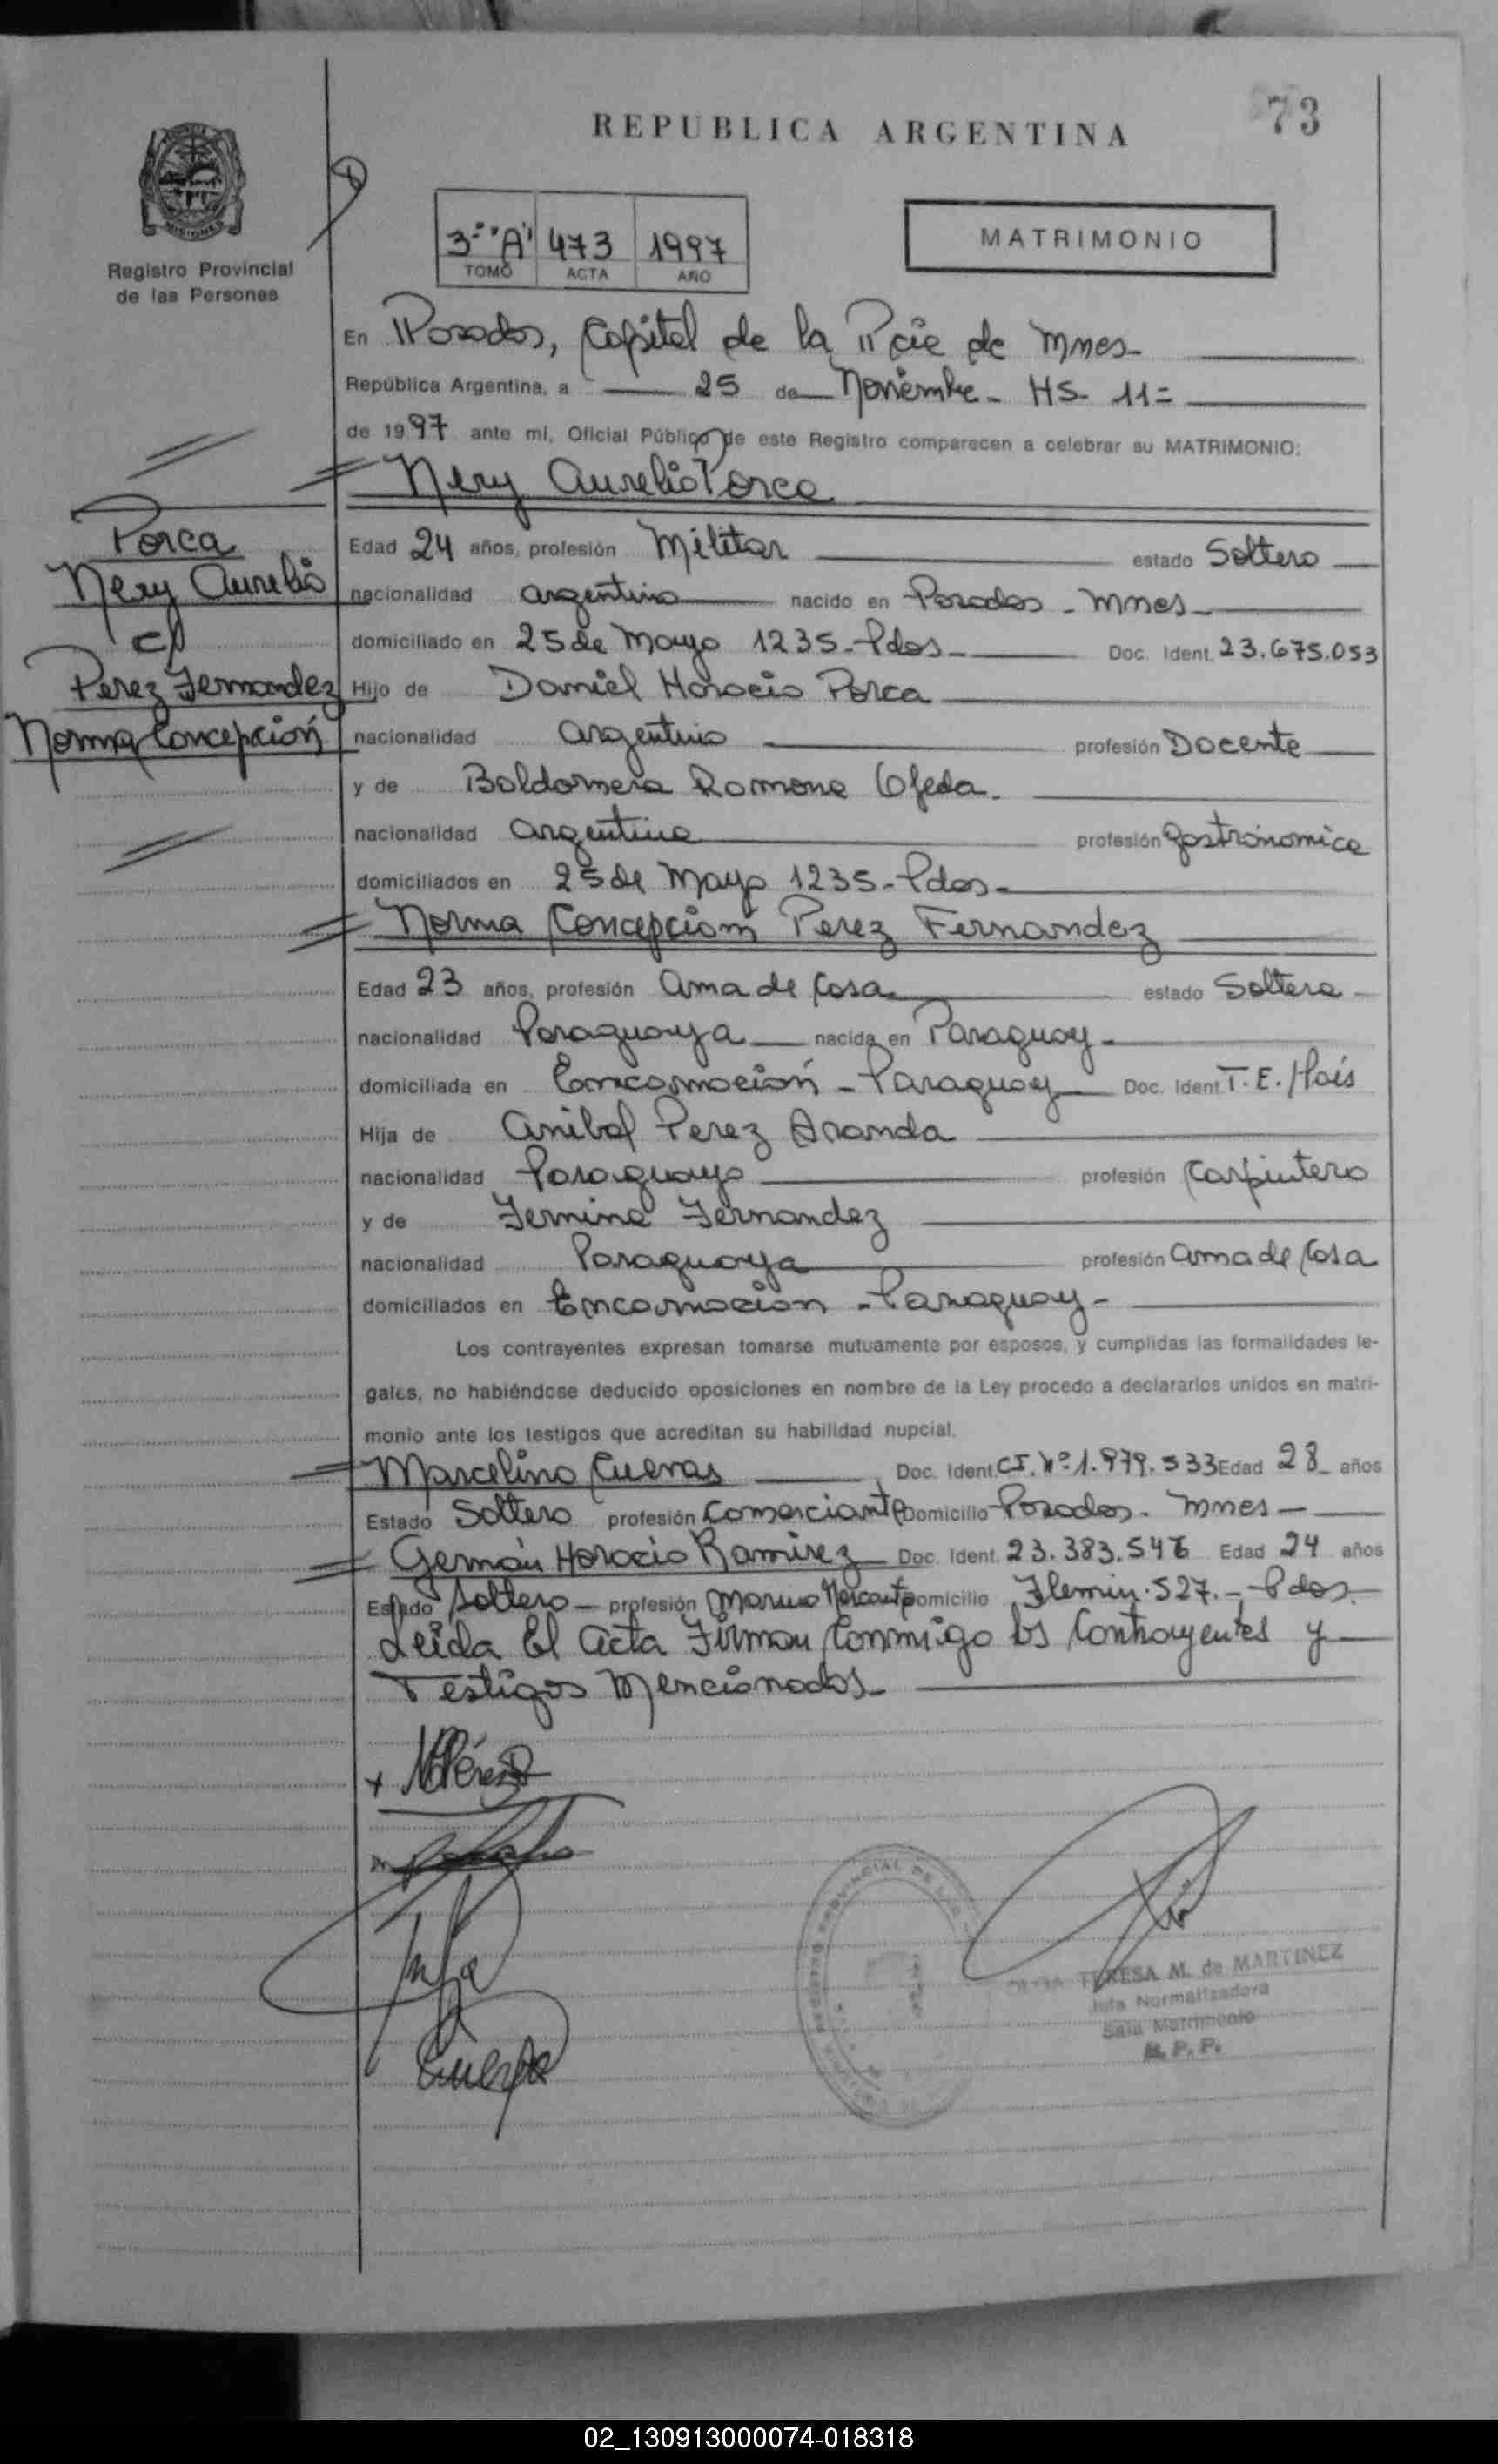 73
REPUBLICA ARGENTINA
MISIONES
Registro Provincial
de las Personas
3º "A" 473 1997
TOMO ACTA AÑO
MATRIMONIO
En Posadas, Capital de la Pcia de Mnes
República Argentina, a 25 de Noviembre - HS- 11=
de 1997 ante mí, Oficial Público de este Registro comparecen a celebrar su MATRIMONIO:
Nery Aurelio Porca
Porca
Nery Aurelio
c/
Perez Fernandez
Norma Concepción
Edad 24 años, profesión Militar estado Soltero
nacionalidad argentino nacido en Posadas - Mnes
domiciliado en 25 de Mayo 1235 - Pdas Doc. Ident. 23.675.053
Hijo de Daniel Horacio Porca
nacionalidad argentino profesión Docente
y de Baldomera Ramona Ojeda.
nacionalidad argentina profesión gastrónomica
domiciliados en 25 de Mayo 1235 - Pdas -
Norma Concepción Perez Fernandez
Edad 23 años, profesión ama de Casa estado Soltera
nacionalidad Paraguaya nacida en Paraguay
domiciliada en Encarnación - Paraguay Doc. Ident. T.E./País
Hija de Anibal Perez Aranda
nacionalidad Paraguayo profesión Carpintero
y de Fermina Fernandez
nacionalidad Paraguaya profesión ama de Casa
domiciliados en Encarnacion - Paraguay -
Los contrayentes expresan tomarse mutuamente por esposos, y cumplidas las formalidades le-
gales, no habiéndose deducido oposiciones en nombre de la Ley procedo a declararlos unidos en matri-
monio ante los testigos que acreditan su habilidad nupcial.
Marcelino Cuevas Doc. Ident. CI. Nº 1.979.533 Edad 28 años
Estado Soltero profesión Comerciante Domicilio Posadas - Mnes -
Germán Horacio Ramirez Doc. Ident. 23.383.546 Edad 24 años
Estado Soltero - profesión Marino Mercante Domicilio Flemin. 527. - Pdas.
Leida El acta Firman Conmigo los Contrayentes y
Testigos Mencionados
TERESA M. de MARTINEZ
Jefa Normalizadora
Sala Matrimonio
R. P. P.
02_130913000074-018318